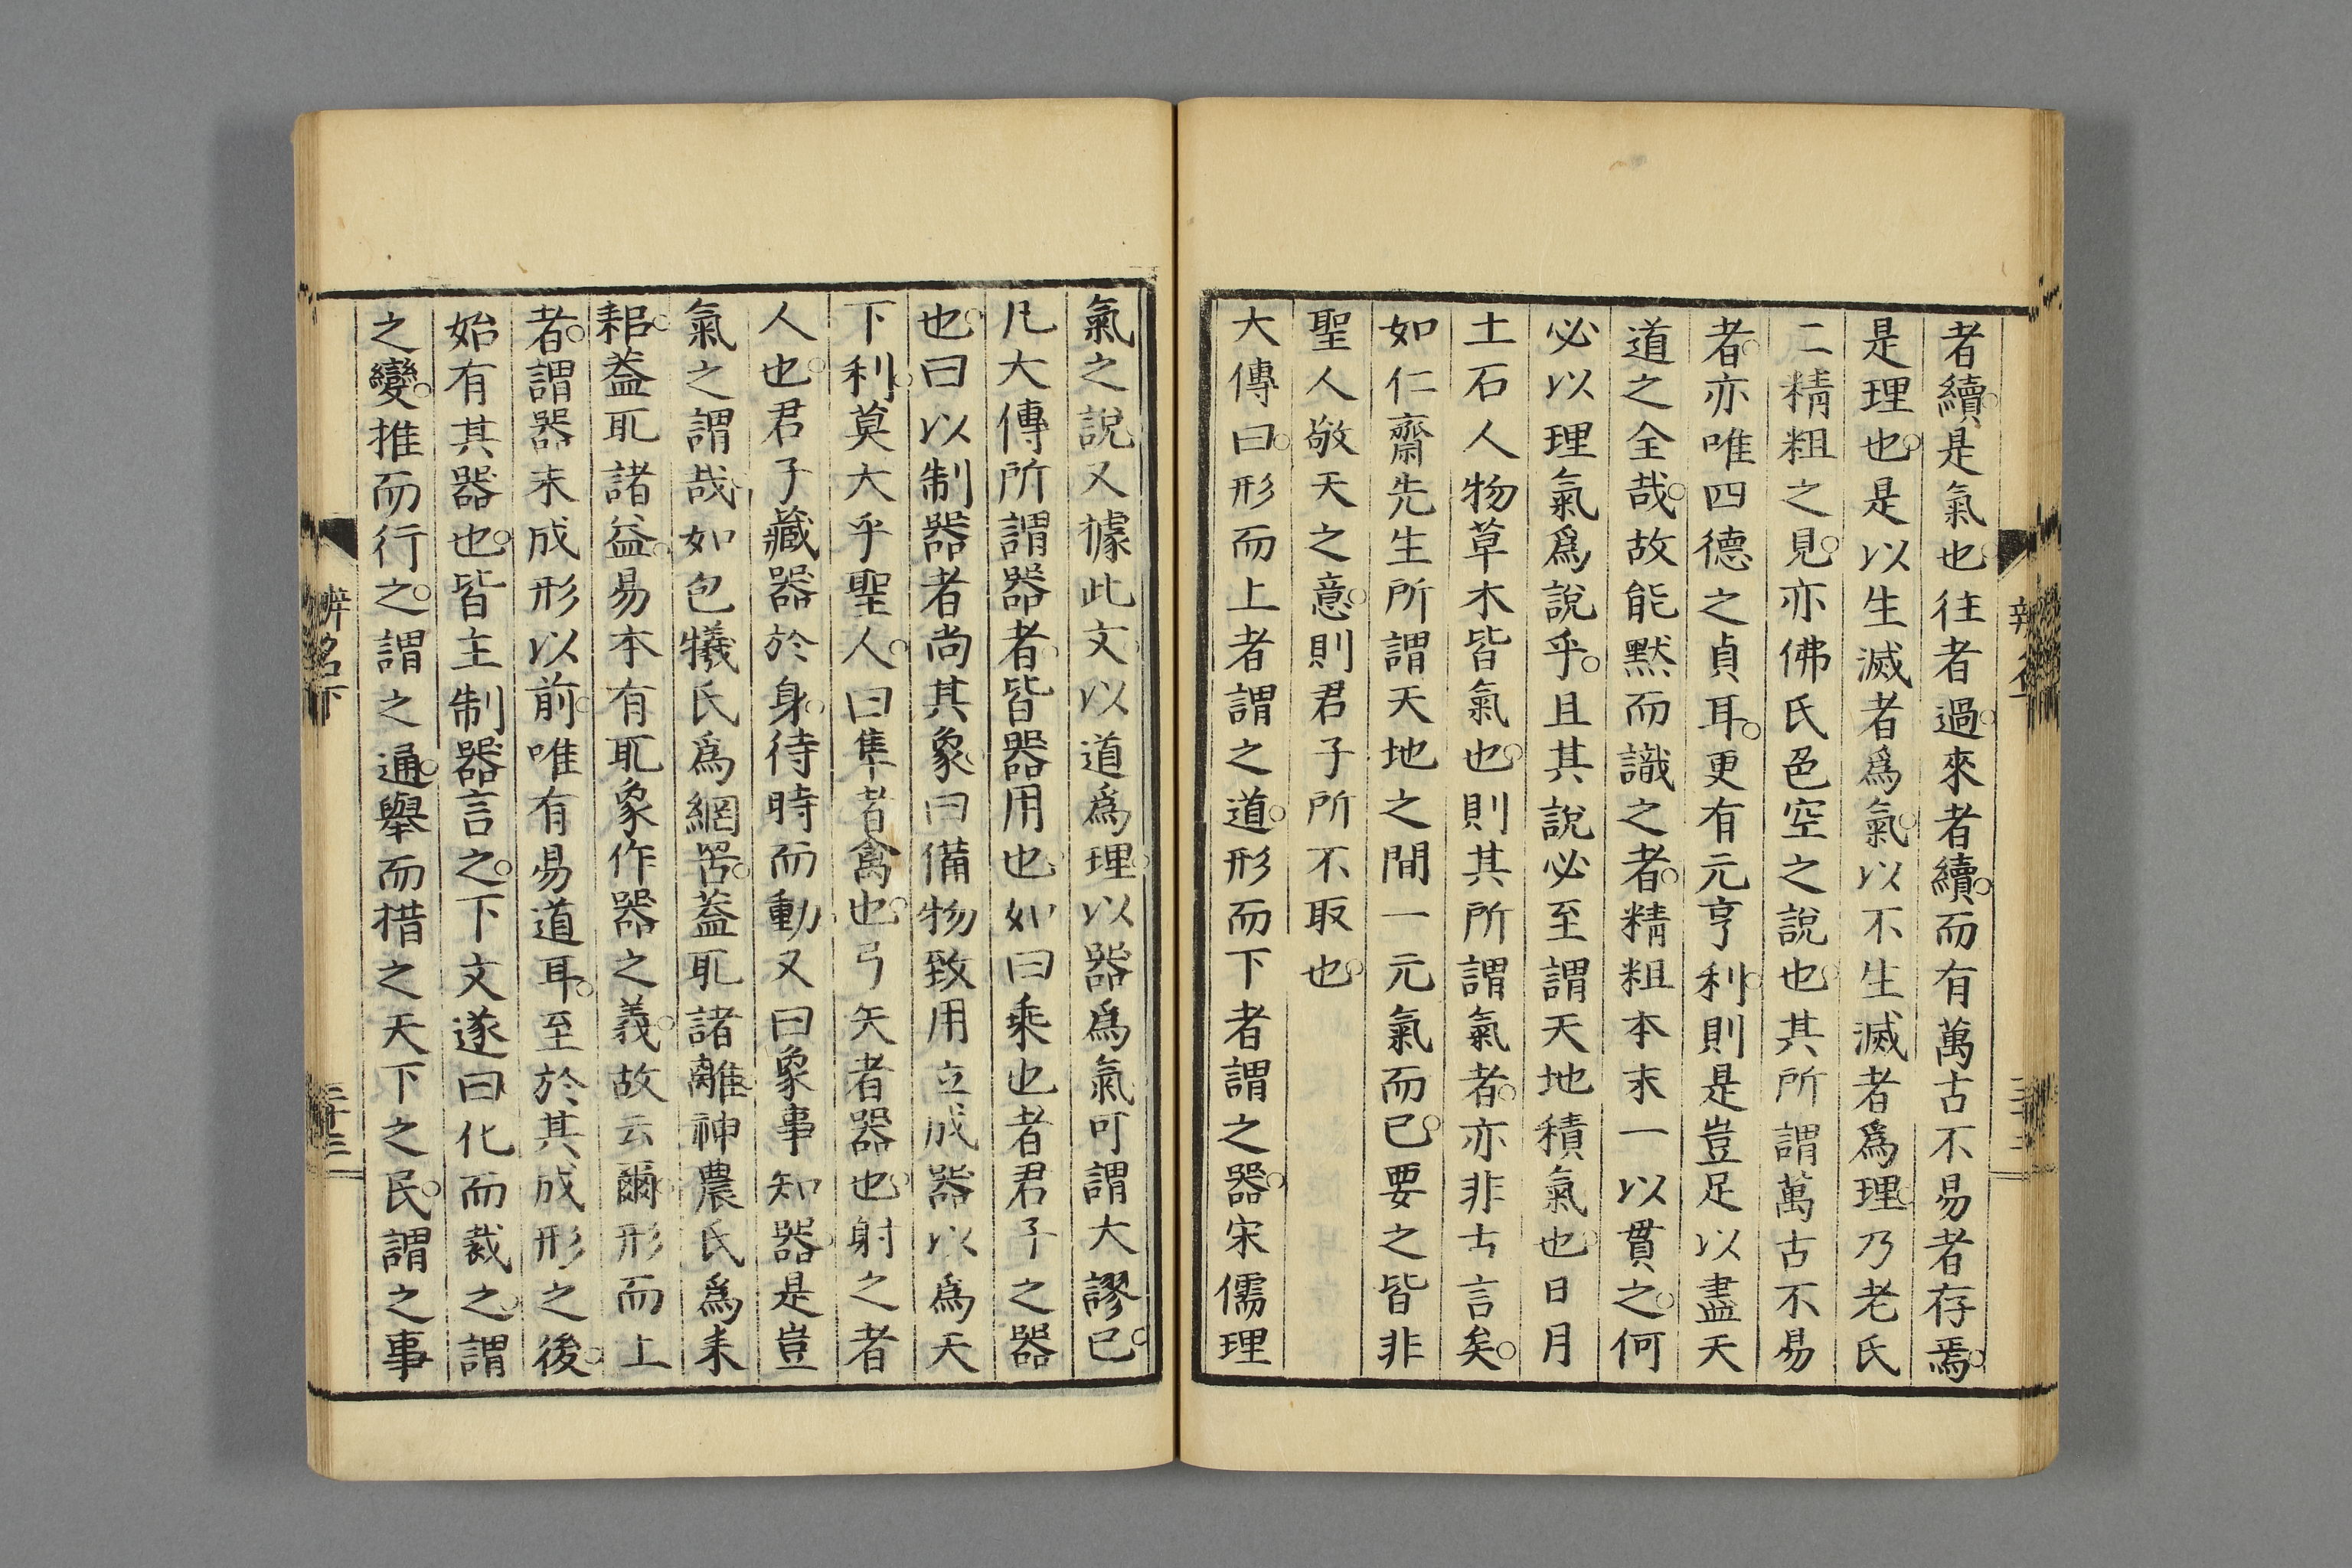 者續是氣也往者過來者續而有萬古不易者存焉
是理也是以生滅者爲氣以不生滅者爲理乃老氏
二精粗之見亦佛氏色空之說也其所謂萬古不易
者亦唯四德之貞耳更有元亨利則是豈足以盡天
道之全哉故能默而識之者精粗本末一以貫之何
必以理氣爲說乎且其說必至謂天地積氣也日月
土石人物草木皆氣也則其所謂氣者亦非古言矣
如仁齋先生所謂天地之間一元氣而已要之皆非
聖人敬天之意則君子所不取也
大傳曰形而上者謂之道形而下者謂之器宋儒理
氣之說又據此文以道爲理以器爲氣可謂大謬已
凡大傳所謂器者皆器用也如曰乘也者君子之器
也曰以制器者尚其象曰備物致用立成器以爲天
下利莫大乎聖人曰隼者禽也弓矢者器也射之者
人也君子藏器於身待時而動又曰象事知器是豈
氣之謂哉如包犧氏爲網罟蓋取諸離神農氏爲耒
耜蓋取諸益易本有取象作器之義故云爾形而上
者謂器未成形以前唯有易道耳至於其成形之後
始有其器也皆主制器言之下文遂曰化而裁之謂
之變推而行之謂之通舉而措之天下之民謂之事
辨名下
二十三